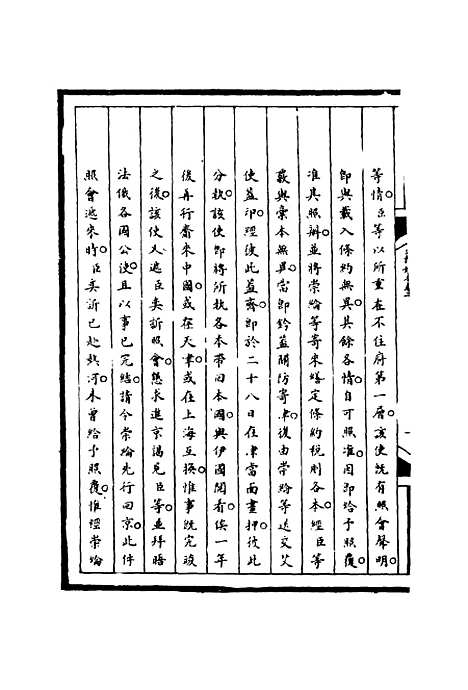 等情。臣等以所重在不住府第一層。該使既有照會聲明。
即與載入條約無異。其餘各情自可照准。因即給予照覆。
准其照辦。並將崇綸等寄來繕定條約稅則各本。經臣等
覈與彙本無異。當即鈐蓋關防寄津。復由崇綸等送交艾
使蓋印。理後此蓋齊。即於二十八日在津當面畫押。彼此
分執。該使即將所執各本帶回本國。與伊國閱看。俟一年
後再行齎來中國。或在天津或在上海互換。惟事既完竣
之後。該使又遞臣奕訢照會。懇求進京謁見臣等。並拜晤
法俄各國公使。且以事已完結。請令崇綸先行回京。此件
照會遞來時。臣奕訢已赴熱河。未曾給予照覆。惟經崇綸